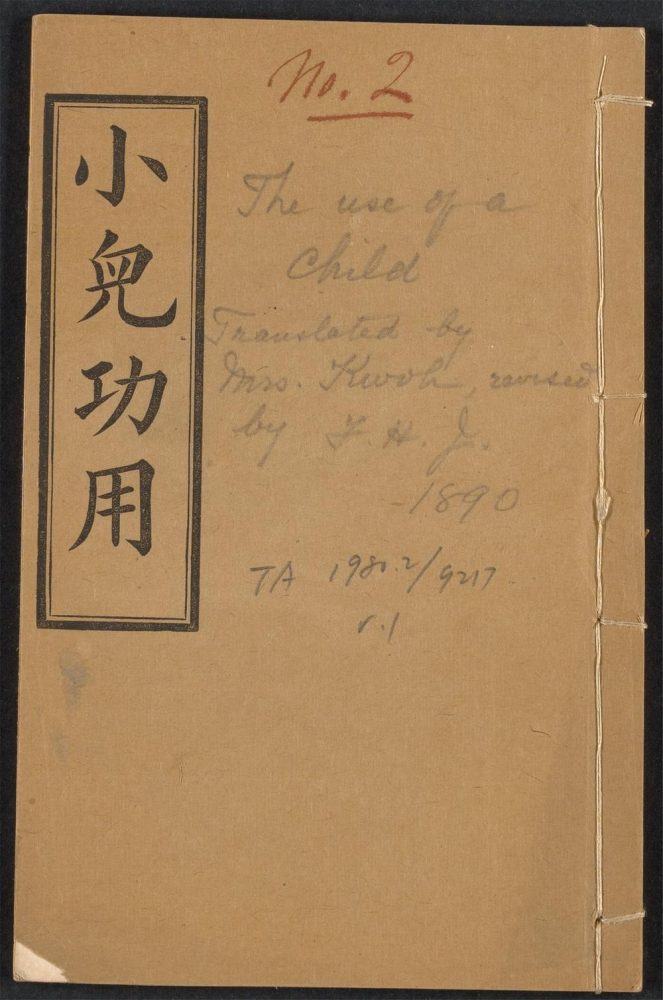 No. 2
小兒功用
The use of a
Child
Translated by
Mrs. Kwoh, revised
by F. H. J.
-1890
TA 1980.2/9217
v.1